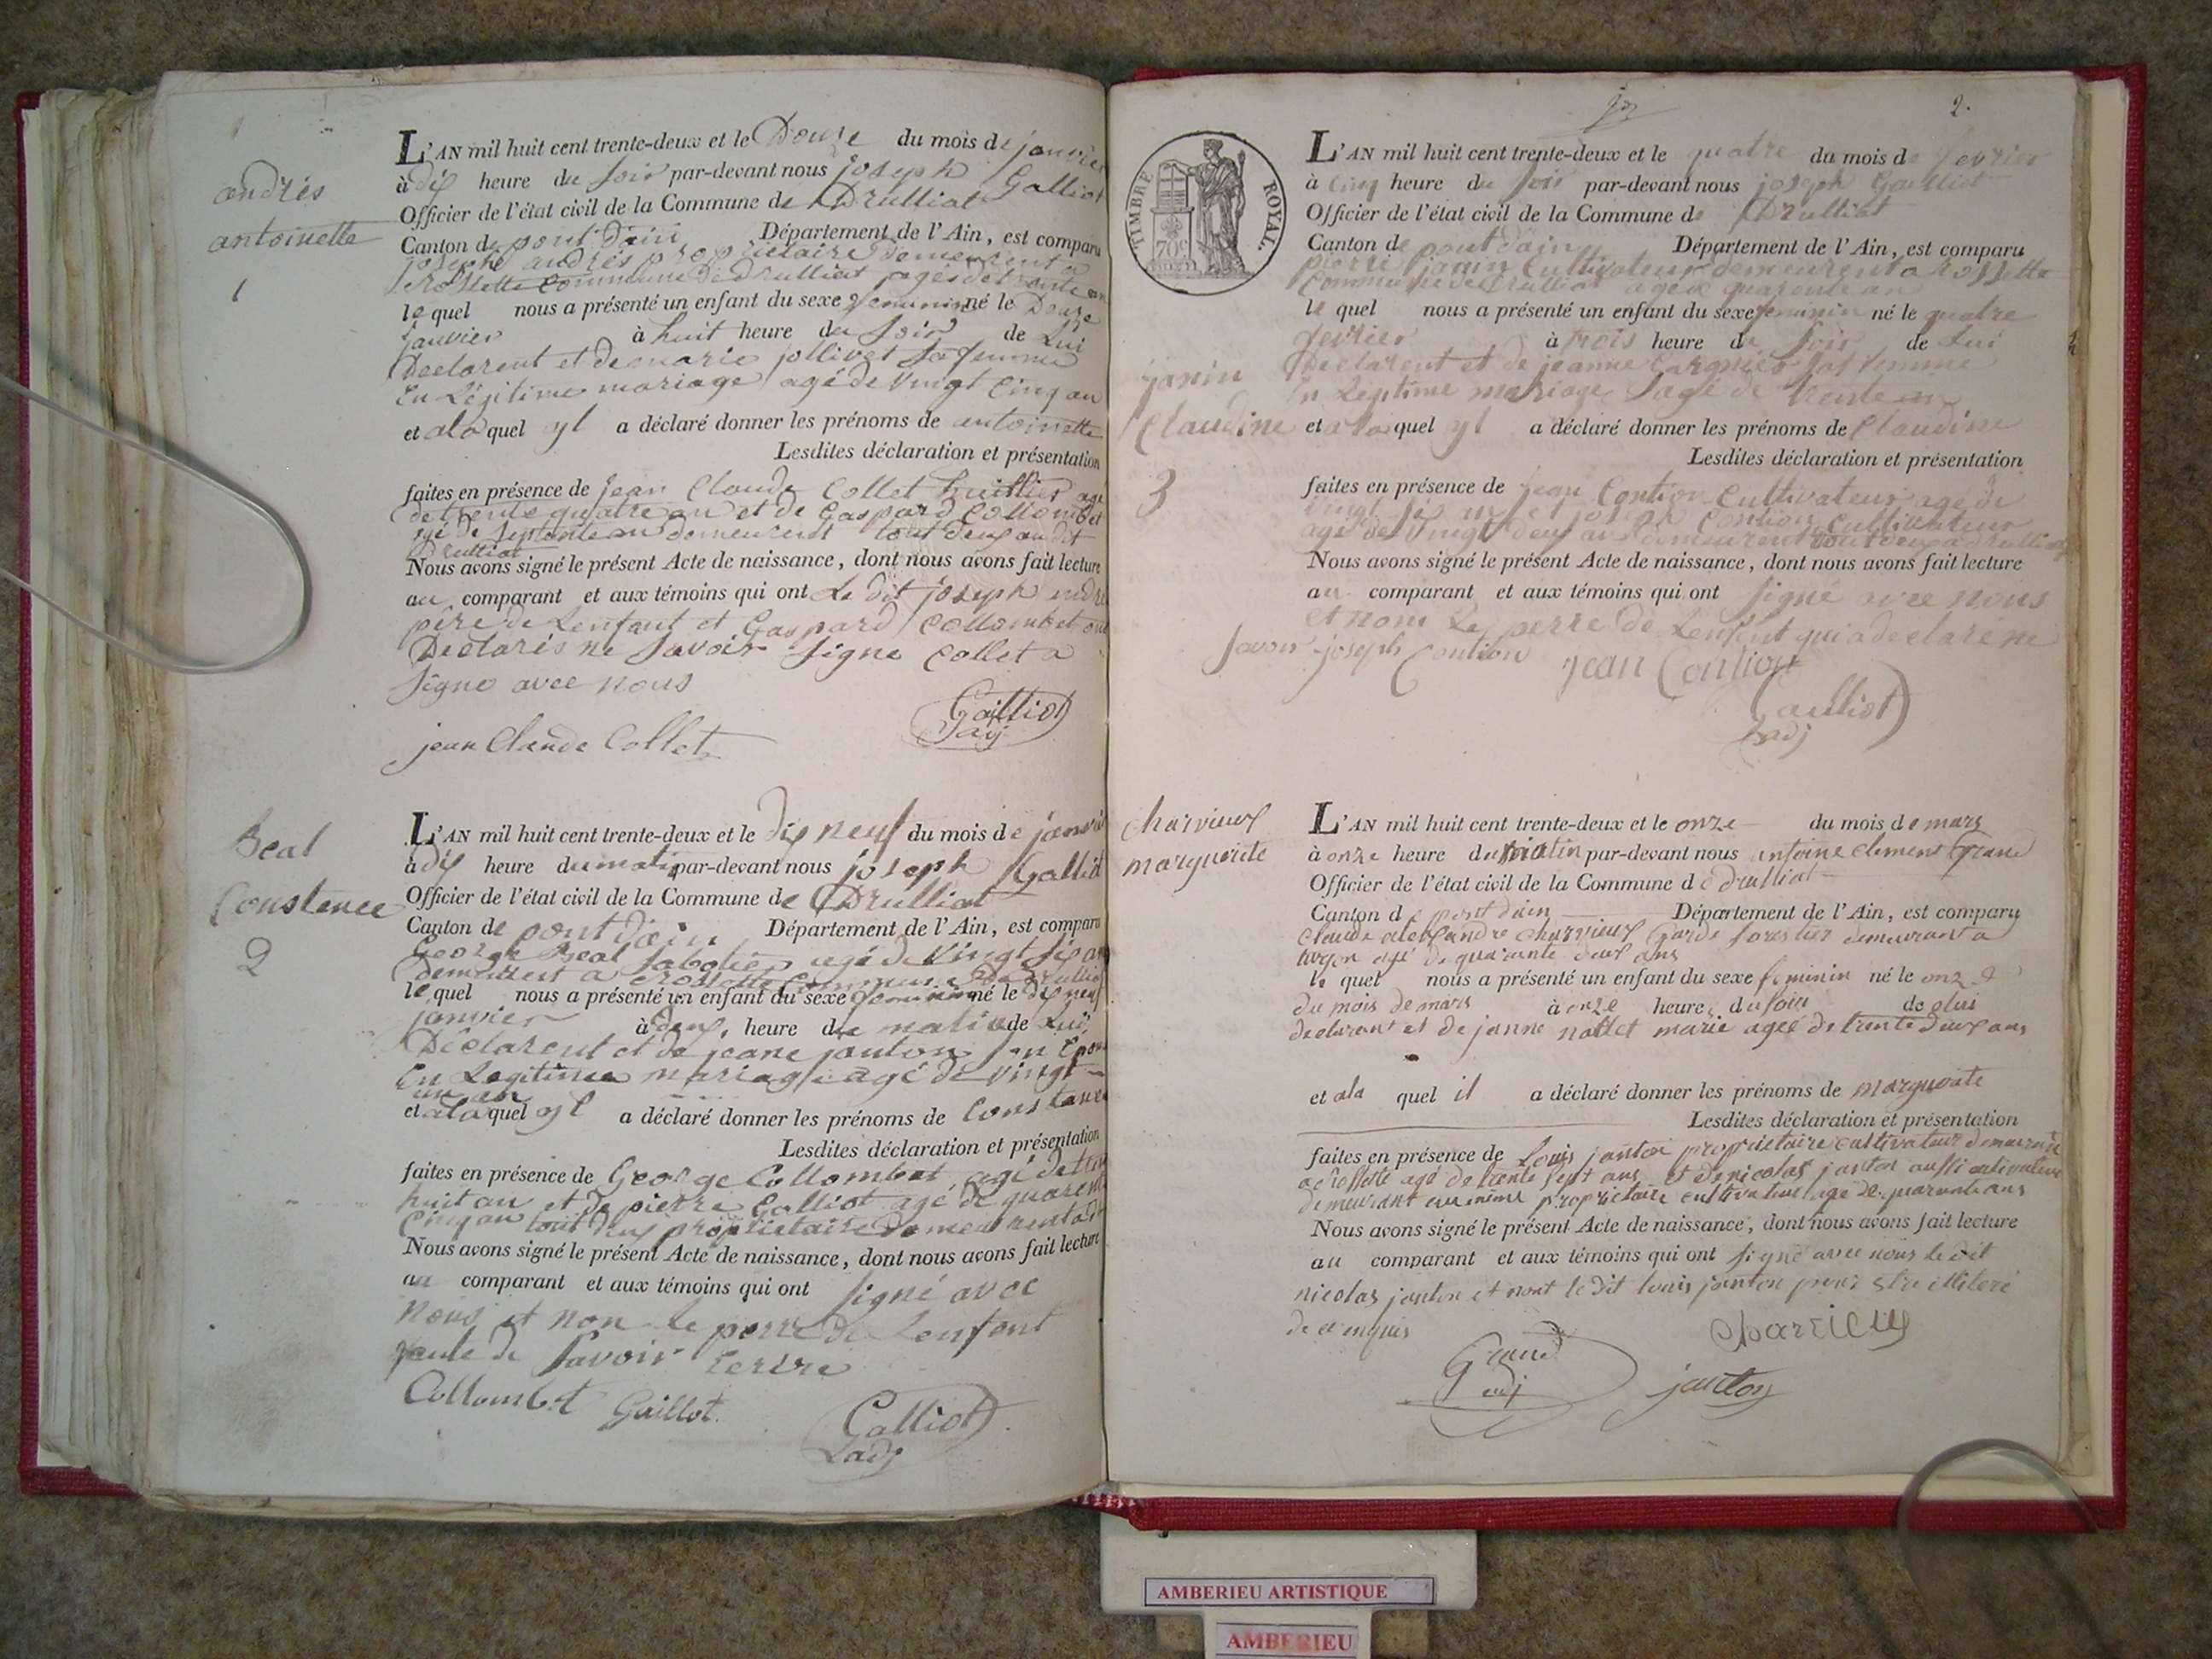 andrés
antoinette
1
L'AN mil huit cent trente-deux et le Douze du mois de janvier
à dix heure du soir par-devant nous joseph Galliot
Officier de l'état civil de la Commune de Drulliat
Canton de pont Dain Département de l'Ain, est comparu
joseph andrés propriétaire demeurent a
rossette commune de Drulliat agés de trante an
le quel nous a présenté un enfant du sexe femininné le Douze
janvier à huit heure du soir de Lui
Declarent et de marie jollivet sa femme
En Légitime mariage agé de vingt cinq an
et ala quel yl a déclaré donner les prénoms de antoinette
Lesdites déclaration et présentation
faites en présence de jean Claude Collet agé
de trente quatre an et de Gaspard Collombet
agé de septente an demeurent tout deux audit
Drulliat
Nous avons signé le présent Acte de naissance, dont nous avons fait lecture
au comparant et aux témoins qui ont Le dit joseph andré
père de Lenfant et Gaspard Collombet ont
Declarés ne savoir signe Collet a
signe avec nous
jean Claude Collet
Galliot
adj
Beal
Constence
2
L'AN mil huit cent trente-deux et le dix neuf du mois de janvié
à dix heure du matin par-devant nous joseph Galliot
Officier de l'état civil de la Commune de Drulliat
Canton de pont dain Département de l'Ain, est comparu
George Beal sabotier agé de vingt six an
demeurent a rossette Commune de Drulliat
le quel nous a présenté un enfant du sexe feminin né le dix neuf
janvier à deux heure du matin de Lui
Déclarent et de jeane janton son Epouse
En Legitime mariage agé de vingt
un an
et ala quel yl a déclaré donner les prénoms de Constance
Lesdites déclaration et présentation
faites en présence de George Collombet agé de trente
huit an et de pierre Galliot agé de quarente
Cinq an tout deux propriétaire demeurent adt
Nous avons signé le présent Acte de naissance, dont nous avons fait lecture
au comparant et aux témoins qui ont signé avec
nous et non le perre de Lenfent
faute de savoir Ecrire
Collombet Gaillot.
Galliot
Ladj
2.
TIMBRE ROYAL.
70c
L'AN mil huit cent trente-deux et le quatre du mois de fevrier
à cinq heure du soir par-devant nous joseph Galliot
Officier de l'état civil de la Commune de Drulliat
Canton de pont dain Département de l'Ain, est comparu
pierre janin Cultivateur demeurent a rossette
Commune de Drulliat agé de quarente an
le quel nous a présenté un enfant du sexe feminin né le quatre
fevrier à trois heure du soir de Lui
Declarent et de jeanne sa femme
En Legitime mariage agé de trente an
janin
Claudine
3
et ala quel yl a déclaré donner les prénoms de Claudine
Lesdites déclaration et présentation
faites en présence de jean Contion Cultivateur agé de
vingt et joseph Contion Cultivateur
agé de vingt deux an demeurent tout deux a Drulliat
Nous avons signé le présent Acte de naissance, dont nous avons fait lecture
au comparant et aux témoins qui ont signé avec nous
et nom Le perre de Lenfent qui a declaré ne
savoir joseph Contion jean Contion
Galliot
adj
charvieux
marguerite
L'AN mil huit cent trente-deux et le onze du mois de mars
à onze heure du matin par-devant nous antoine clement Grand
Officier de l'état civil de la Commune de drulliat
Canton de pont dain Département de l'Ain, est comparu
claude alexandre charvieux garde forestier demeurant a
turgon agé de quarante deux ans
le quel nous a présenté un enfant du sexe feminin né le onze
du mois de mars à onze heure du soir de lui
declarant et de janne nallet marie agee de trente deux ans
et ala quel il a déclaré donner les prénoms de marguerite
Lesdites déclaration et présentation
faites en présence de Louis janton propriétaire cultivateur demeurant
agé de trente sept ans et de nicolas janton aussi cultivateur
demeurant propriétaire cultivateur agé de quarante ans
Nous avons signé le présent Acte de naissance, dont nous avons fait lecture
au comparant et aux témoins qui ont signé avec nous le dit
nicolas janton et nont le dit louis janton pour etre illiteré
de ce enquis
charvieux
Grand
adj
janton
AMBERIEU ARTISTIQUE
AMBERIEU